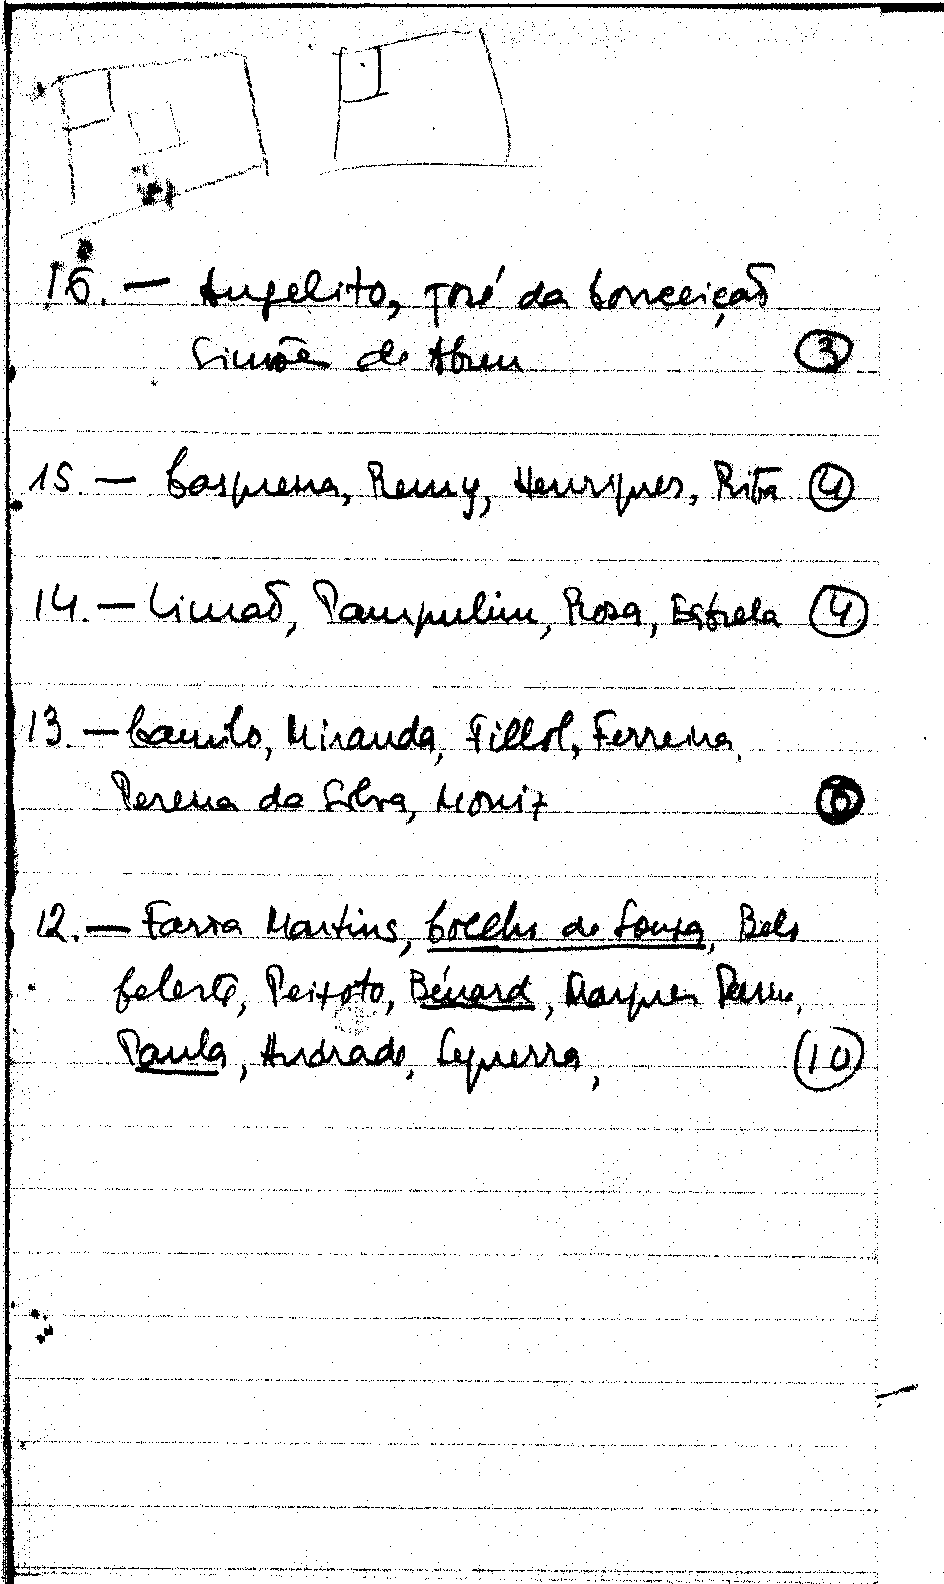 16. — Angelito, José da Conceição
Simões de Abreu ③
15. — Cosqueira, Remy, Henriques, Rita ④
14. — Limaõ, Pampulim, Rosa, Estrela ④
13. — Camilo, Miranda, Fillol, Ferreira,
Pereira da Silva, Moniz ⑥
12. — Faria Martins, Coelho de Sousa, Belo
Celeste, Peixoto, Bénard, Marques
Paula, Andrade, Sequerra, ⑩